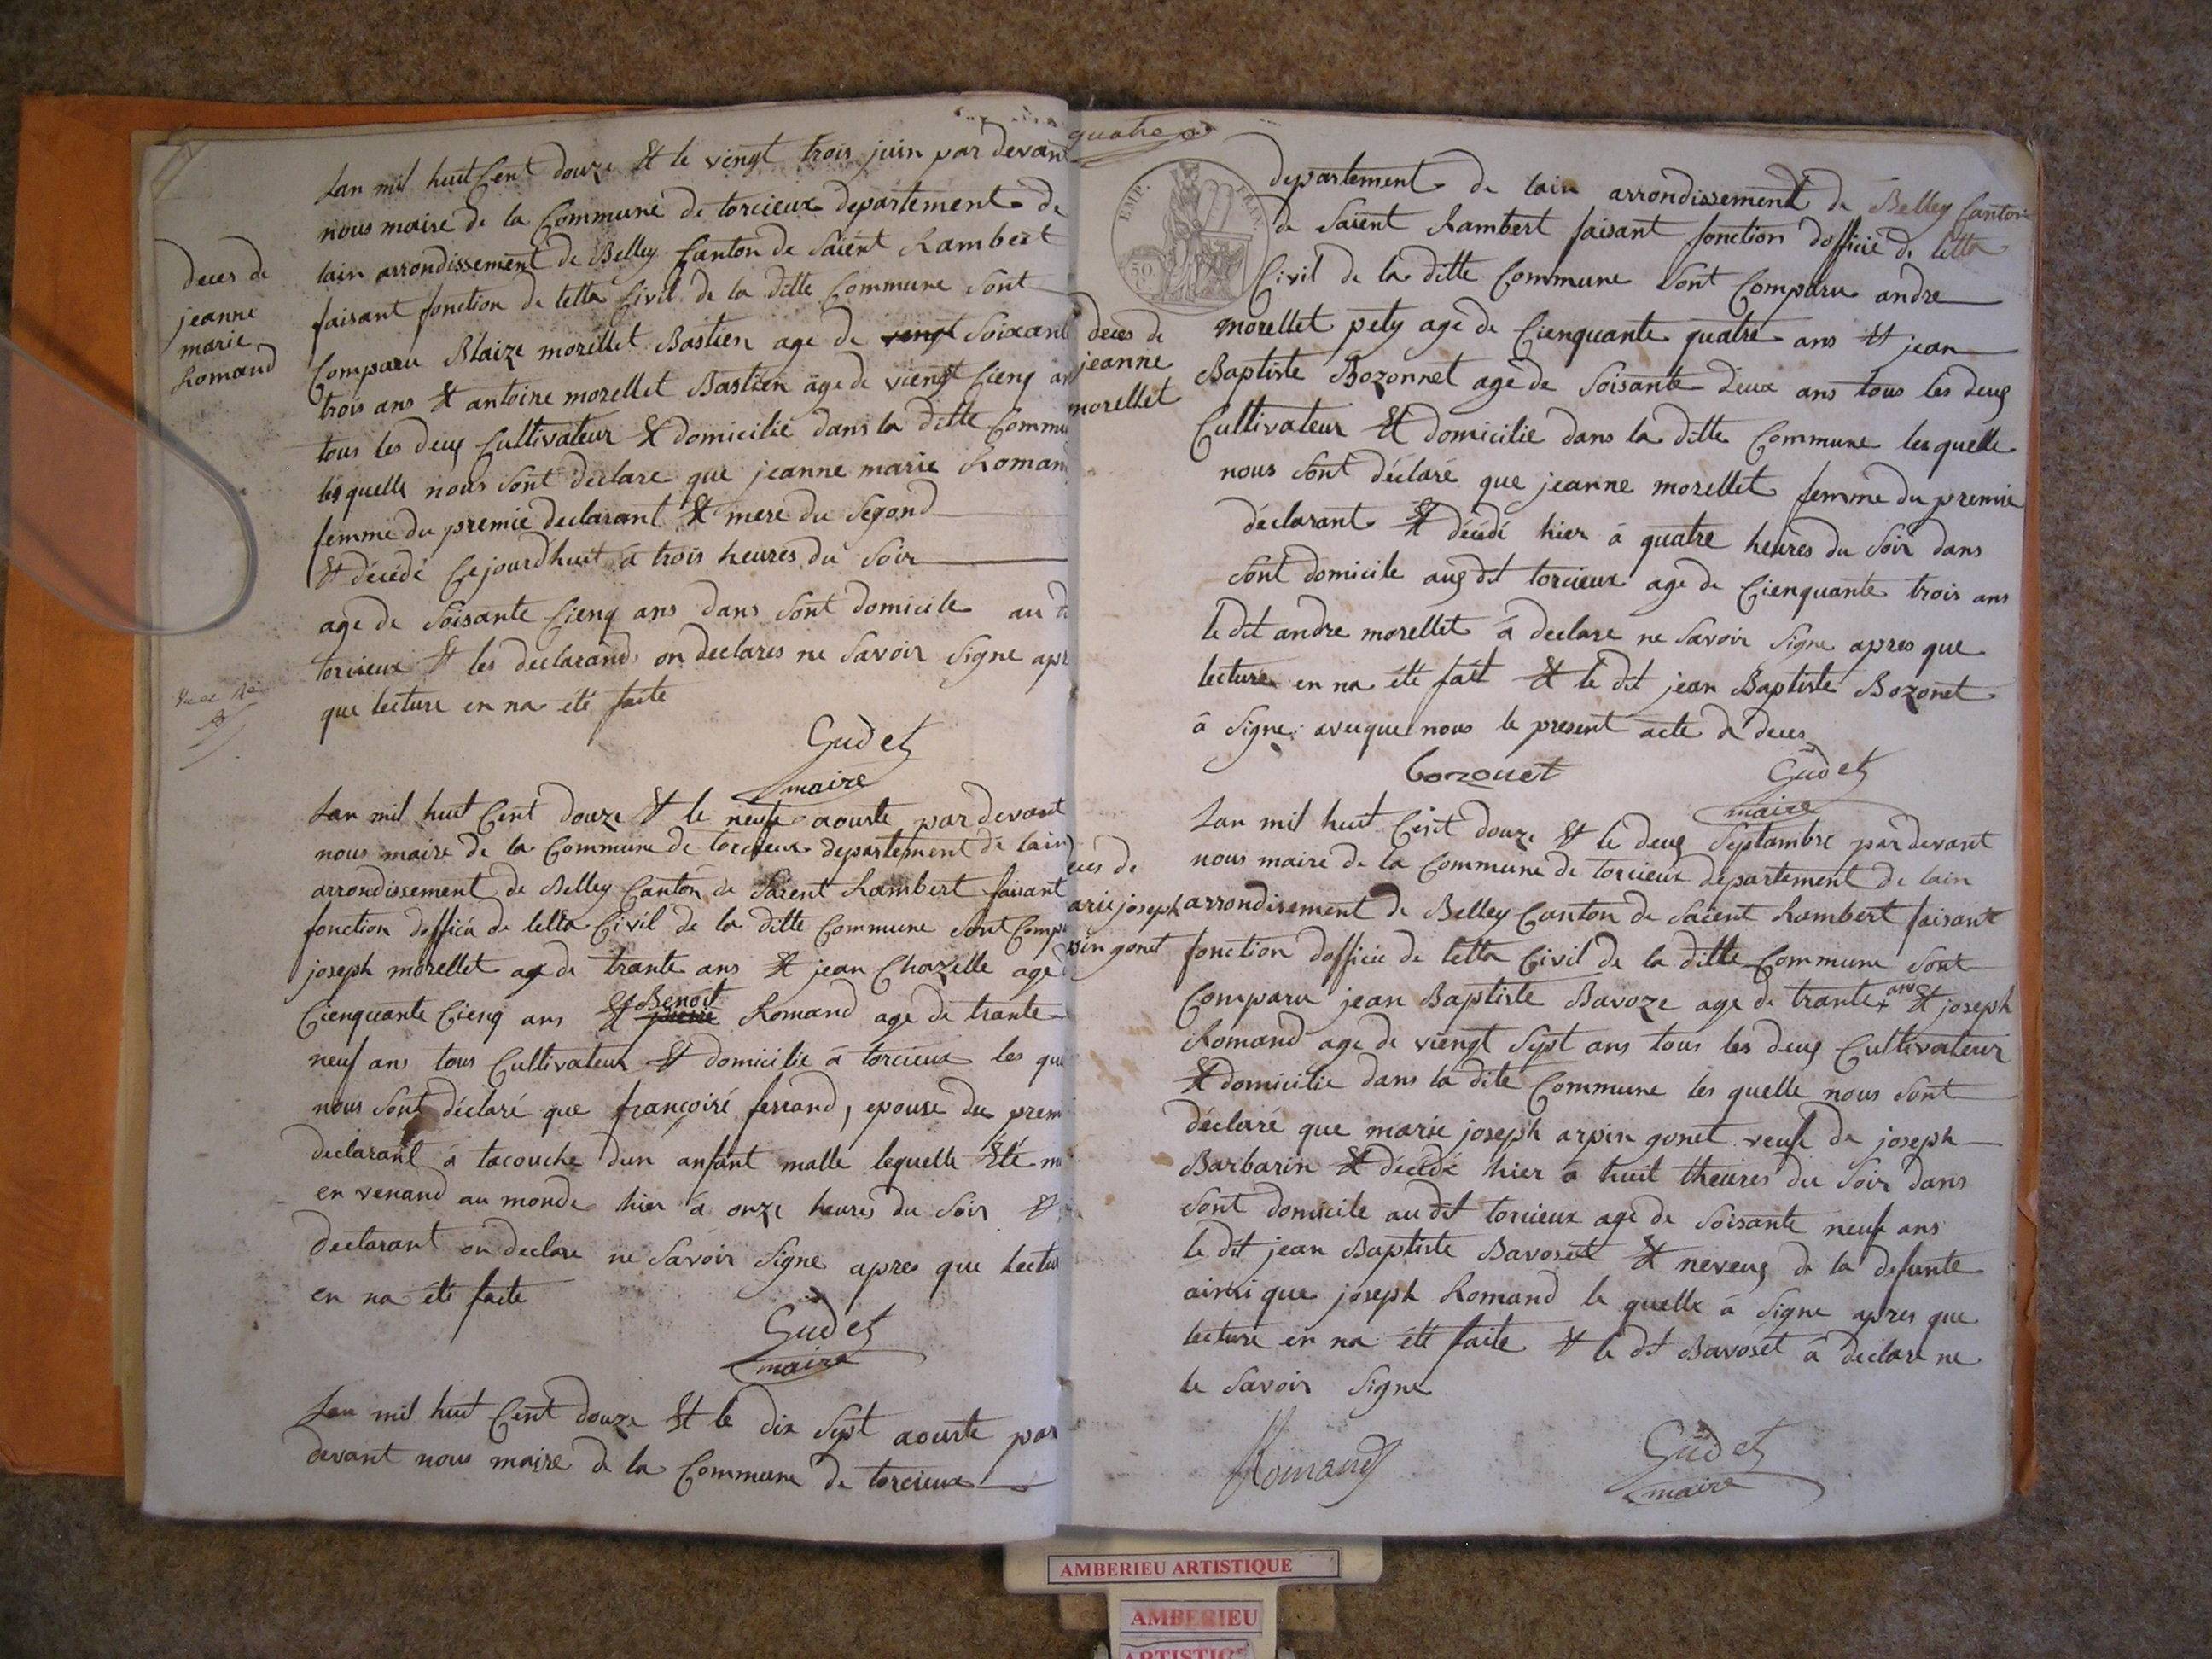 Lan mil huit Cent douze Et le vingt trois juin par devant
nous maire de la Commune de torcieux departement de
lain arrondissement de Belley Canton de Saient Rambert
faisant fonction de letta Civil de la ditte Commune Sont
Comparu Blaize morellet Bastien age de vengt Soixante
trois ans Et antoine morellet Bastien âge de viengt Cienq ans
tous les deux Cultivateur Et domicilie dans la ditte Commu
les quelle nous Sont declare que jeanne marie Romand
femme du premie declarant Et mere du Segond
Et décédé Cejourdhuit à trois heures du Soir
age de Soisante Cienq ans dans Sont domicile au d
torcieux Et les declarand on declares ne Savoir Signe apr
que lecture en na eté faite
deces de
jeanne
marie
Romand
Gudet
maire
Lan mil huit Cent douze Et le neufe aouste par devant
nous maire de la Commune de torcieux departement de lain
arrondissement de Belley Canton de Saient Rambert faisant
fonction dofficié de letta Civil de la ditte Commune Sont Comp
joseph morellet age de trante ans Et jean Chazelle age
Cienquante Cienq ans Et Benoit Romand age de trante
neuf ans tous Cultivateur Et domicilie à torcieux les que
nous Sont déclaré que françoise ferrand, epouse du prem
declarant à tacouche dun anfant malle lequelle Eté m
en venand au monde hier à onze heures du Soir Et
declarant on declare ne Savoir Signe apres que lectu
en na été faite
Gudet
maire
Lan mil huit Cent douze Et le dix Sept aouste par
devant nous maire de la Commune de torcieux
quatre
EMP. FRAN.
50 C.
departement de lain arrondissement de Belley Canton
de Saient Rambert faisant fonction dofficie de letta
Civil de la ditte Commune Sont Comparu andre
morellet pety age de Cienquante quatre ans Et jean
Baptiste Bozonnet age de Soisante deux ans tous les deux
Cultivateur Et domicilie dans la ditte Commune lesquelle
nous Sont déclaré que jeanne morellet femme du premie
déclarant Et décédé hier à quatre heures du Soir dans
Sont domicile aux dit torcieux age de Cienquante trois ans
le dit andre morellet à declare ne Savoir Signe apres que
lecture en na été fait Et le dit jean Baptiste Bozonet
à Signe avecque nous le present acte de deces
deces de
jeanne
morellet
bozonet Gudet
maire
Lan mil huit Cent douze Et le deux Septambre par devant
nous maire de la Commune de torcieux departement de lain
arrondisement de Belley Canton de Saient Rambert faisant
fonction dofficie de letta Civil de la ditte Commune Sont
Comparu jean Baptiste Bavoze age de trante ans Et joseph
Romand age de viengt Sept ans tous les deux Cultivateur
Et domicilie dans la dite Commune les quelle nous Sont
déclaré que marie joseph arpin gonet veufe de joseph
Barbarin Et décédé hier à huit theures du Soir dans
Sont domicile audit torcieux age de Soisante neufe ans
le dit jean Baptiste Bavoset Et neveux de la defunte
ainsi que joseph Romand le quelle à Signe apres que
lecture en na été faite Et le dit Bavoset à declare ne
le Savoir Signe
ces de
arie joseph
pin gonet
Romand Gudet
maire
AMBERIEU ARTISTIQUE
AMBERIEU
ARTISTIQUE